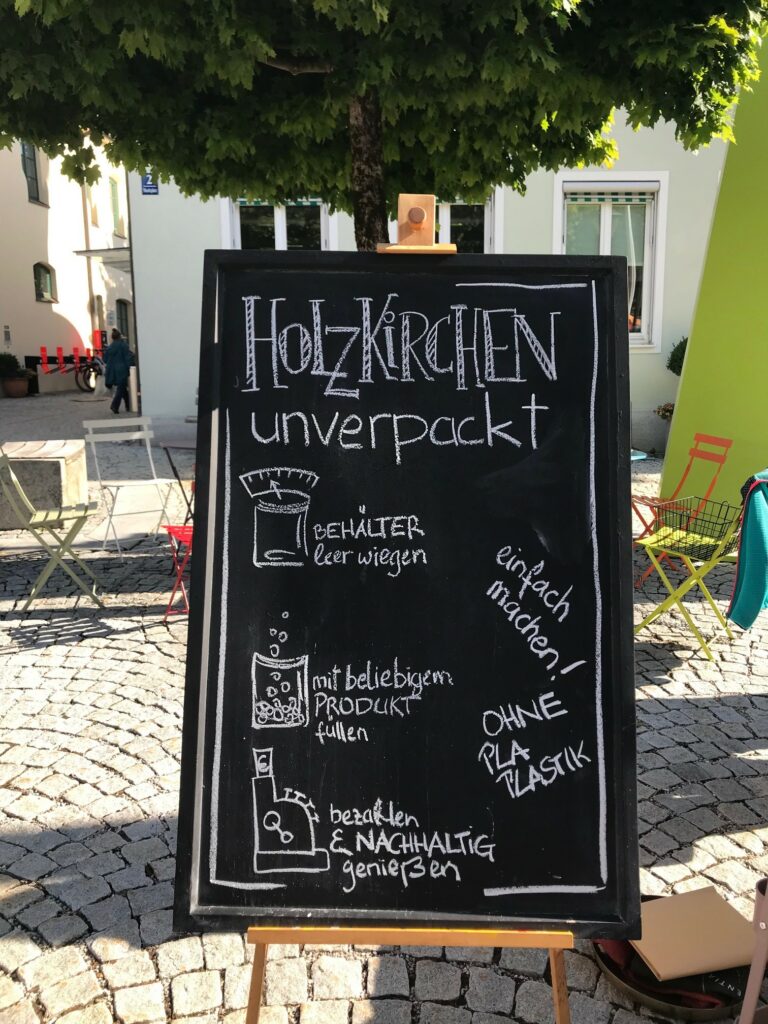 HOLZKIRCHEN
unverpackt
BEHÄLTER
leer wiegen
einfach
machen!
mit beliebigem
PRODUKT
füllen
OHNE
PLA
PLASTIK
€
bezahlen
& NACHHALTIG
genießen
2